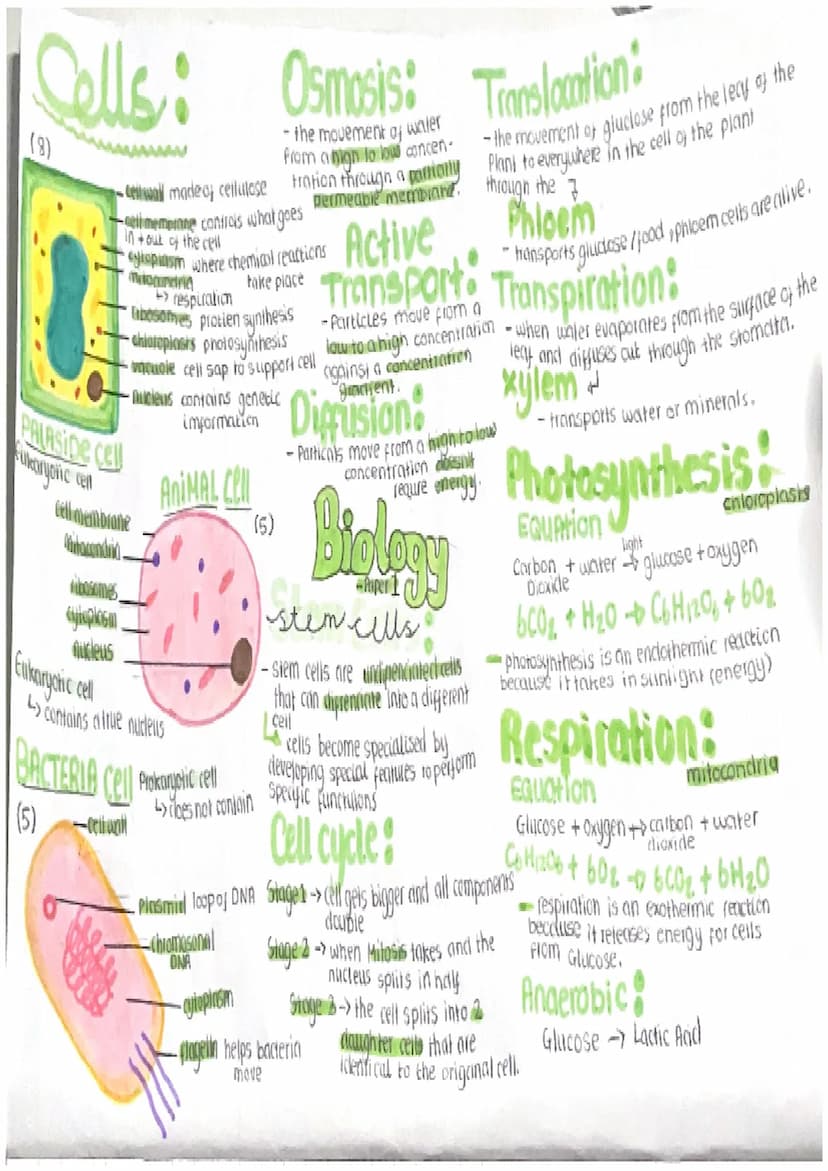 Cells:
(8)
cell wall made of cellulose
cell membrane controls what goes
in + out of the cell
cytoplasm where chemical reactions
take place
mitocondria
↳ respiration
ribosomes protien synthesis
chloroplasts photosynthesis
vacuole cell sap to support cell
nucleus contains genetic
information
PALASIDE CELL
Eukaryotic cell
ANIMAL CELL
(5)
cell membrane
mitocondria
ribosomes
cytoplasm
nucleus
Eukaryotic cell
↳ contains a true nucleus
BACTERIA CELL
Prokaryotic cell
↳ does not contain
(5)
cell wall
plasmid loop of DNA
chromosonal
DNA
cytoplasm
flagella helps bacteria
move
Osmosis:
- the movement of water
from a high to low concen-
tration through a partially
permeable membrane.
Active
Transport:
- Particles move from a
low to a high concentration
against a concentration
gradient.
Diffusion:
- Particals move from a high to low
concentration doesnt
requre energy.
Biology
- Paper 1
stem cells:
- stem cells are
that can into a different
cell
↳ cells become specialised by
developing special features to perform
specific functions
Cell cycle:
Stage 1 → cell gets bigger and all components
double
Stage 2 → when Mitosis takes and the
nucleus splits in half
Stage 3 → the cell splits into 2
daughter cells that are
identical to the original cell.
Translocation:
- the movement of glucose from the leaf of the
Plant to everywhere in the cell of the plant
through the ↴
Phloem
- transports glucose / food, phloem cells are alive.
Transpiration:
- when water evaporates from the surface of the
leaf and diffuses out through the stomata.
xylem ↲
- transports water or minerals.
Photosynthesis:
chloroplasts
EQUATION
Carbon + water light→ glucose + oxygen
Dioxide
6CO₂ + H₂O → C6H12O6 + 6O₂
- photosynthesis is an endothermic reaction
because it takes in sunlight (energy)
Respiration:
mitocondria
EQUATION
Glucose + oxygen → carbon + water
dioxide
C6H12O6 + 6O₂ → 6CO₂ + 6H₂O
- respiration is an exothermic reaction
because it releases energy for cells
from Glucose.
Anaerobic:
Glucose → Lactic Acid